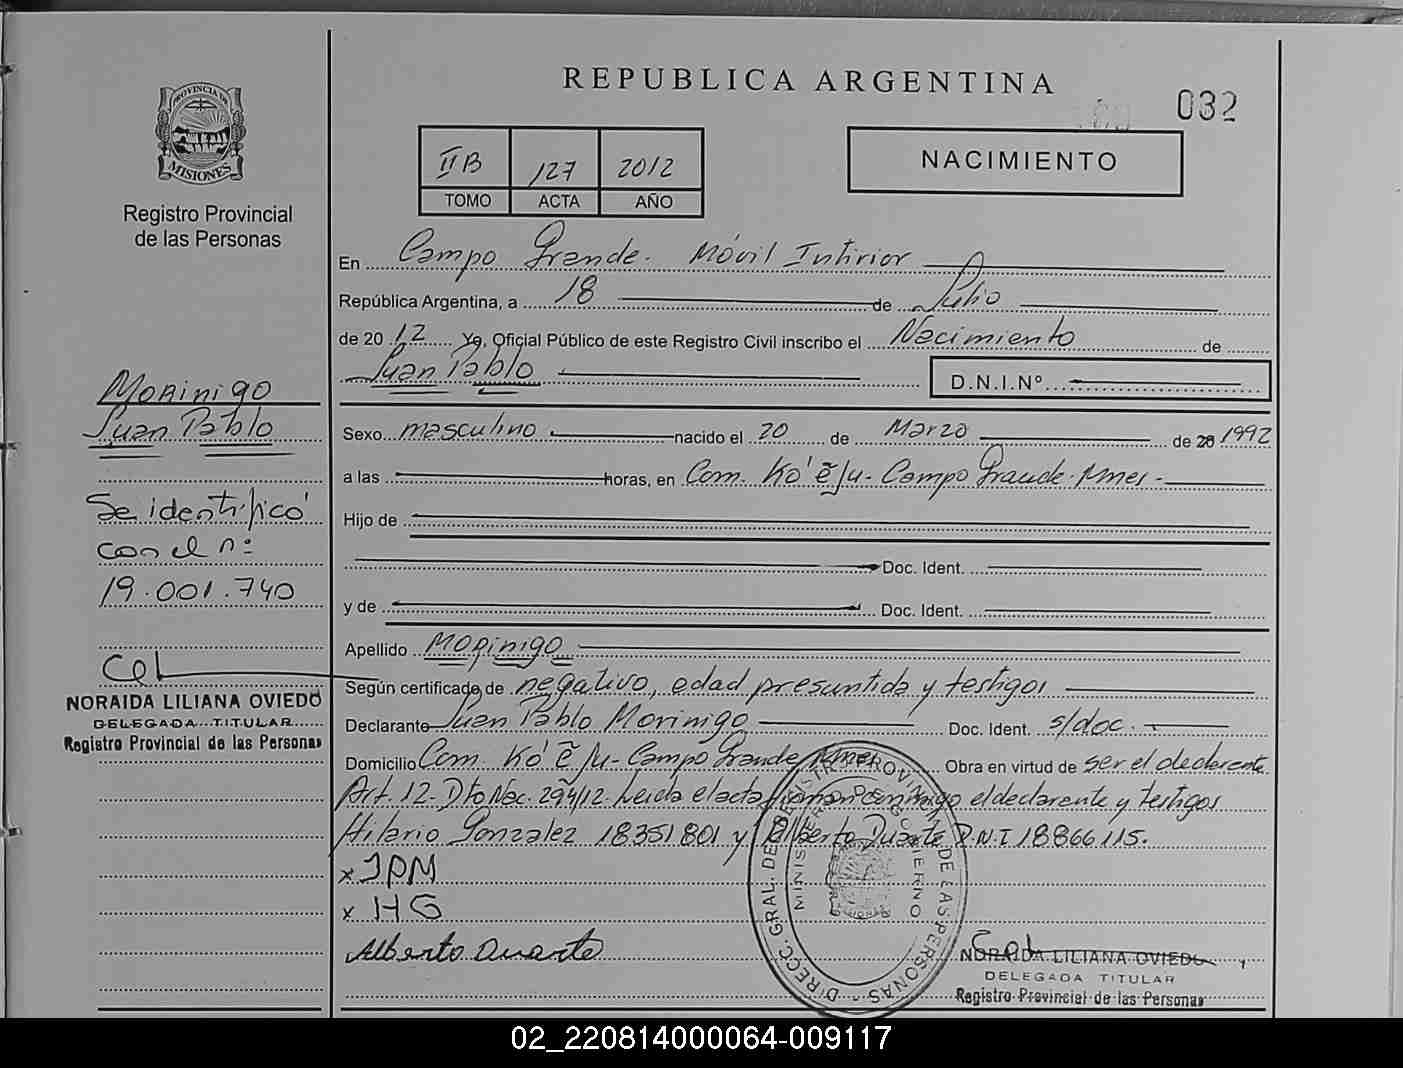 REPUBLICA ARGENTINA
032
PROVINCIA DE
MISIONES
Registro Provincial
de las Personas
II B 127 2012
TOMO ACTA AÑO
NACIMIENTO
En Campo Grande. Móvil Intirior
República Argentina, a 18 de Julio
de 20 12 Yo, Oficial Público de este Registro Civil inscribo el Nacimiento de
Juan Pablo D.N.I.Nº
Morinigo
Juan Pablo
Se identificó
con el nº
19.001.740
NORAIDA LILIANA OVIEDO
DELEGADA TITULAR
Registro Provincial de las Personas
Sexo masculino nacido el 20 de Marzo de 1992
a las horas, en Com. Ko' ẽ Ju - Campo Grande - Mnes -
Hijo de
Doc. Ident.
y de Doc. Ident.
Apellido MORINIGO
Según certificado de negativo, edad presuntida y testigos
Declarante Juan Pablo Morinigo Doc. Ident. s/doc.
Domicilio Com. Kó ẽ Ju - Campo Grande, Mnes Obra en virtud de ser el declarente
Art. 12 - Dto Nac. 294/12. Leida el acta firman conmigo el declarente y testigos
Hilario Gonzalez 18351801 y Alberto Duarte D.N.I 18866115.
x JPM
x HG
Alberto Duarte
DIRECC. GRAL. DEL REGISTRO PROVINCIAL DE LAS PERSONAS
MINISTERIO DE GOBIERNO
NORAIDA LILIANA OVIEDO
DELEGADA TITULAR
Registro Provincial de las Personas
02_220814000064-009117